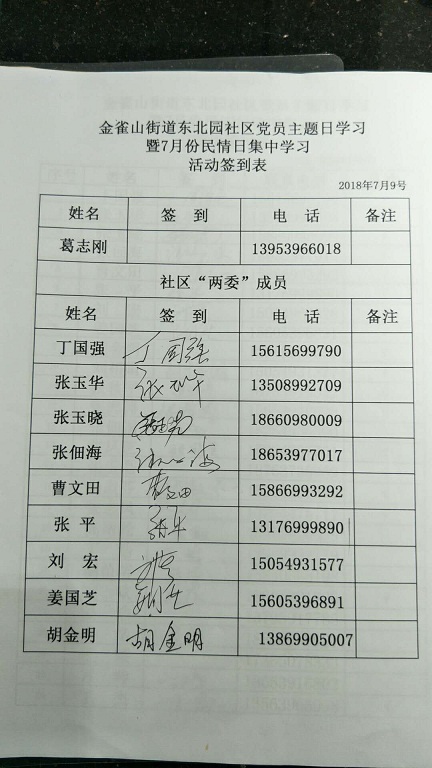 金雀山街道东北园社区党员主题日学习
暨7月份民情日集中学习
活动签到表
2018年7月9号
姓名 签 到 电 话 备注
葛志刚 13953966018
社区“两委”成员
姓名 签 到 电 话 备注
丁国强 丁国强 15615699790
张玉华 13508992709
张玉晓 18660980009
张佃海 18653977017
曹文田 曹文田 15866993292
张 平 张平 13176999890
刘 宏 15054931577
姜国芝 15605396891
胡金明 胡金明 13869905007